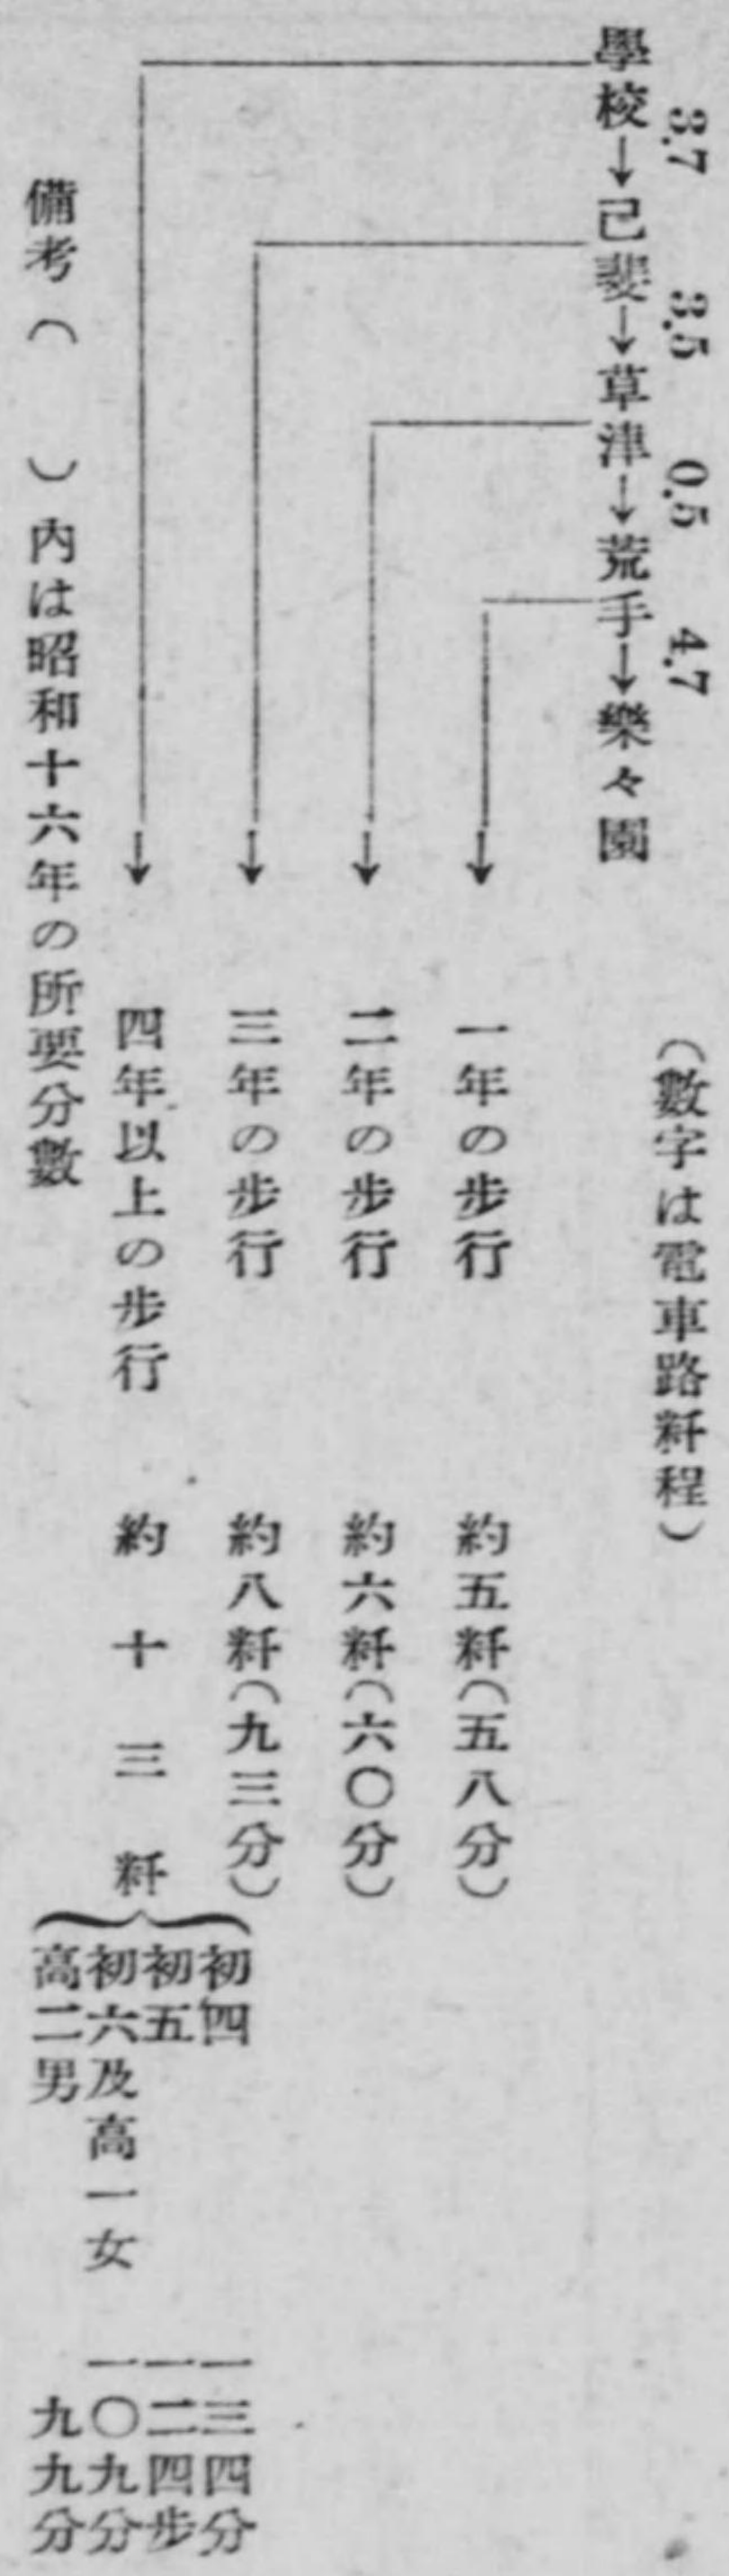 3.7 3.5 0.5 4.7
(數字は電車路粁程)
學校→己斐→草津→荒手→樂々園
一年の步行 約五粁(五八分)
二年の步行 約六粁(六〇分)
三年の步行 約八粁(九三分)
四年以上の步行 約十三粁
初四 一三四分
初五 一二四步
初六及高一女 一〇九分
高二男 九九分
備考( )內は昭和十六年の所要分數